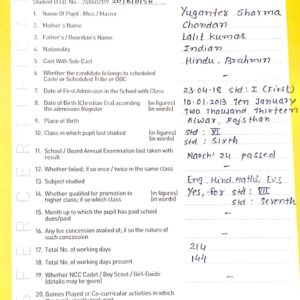 Student U.I.D. No.
1. Name Of Pupil : Miss / Master Yuganter Sharma
2. Mother's Name Chandan
3. Father's / Guardian's Name Lalit Kumar
4. Nationality Indian
5. Cast With Sub-Cast Hindu, Brahmin
6. Whether the candidate belongs to scheduled
Caste or Scheduled Tribe or OBC —
7. Date of First Admission in the School with Class 23-04-18 Std : I (First)
8. Date of Birth (Christian Era) according (in figures) 10.01.2013 Ten January
the admission Register (in words) Two Thousand Thirteen
9. Place of Birth Alwar, Rajsthan
10. Class in which pupil last studied (in figures) Std : VI
(in words) Std : Sixth
11. School / Board Annual Examination last taken with
result March' 24 passed
12. Whether failed; if so once / twice in the same class —
13. Subject studied Eng, Hind, Maths, Evs
14. Whether qualified for promotion to (in figures) Yes, for Std : VII
higher class; if so which class (in words) Std : Seventh
15. Month up to which the pupil has paid school
dues/paid
16. Any fee concession availed of; if so the nature of
such concession —
17. Total No. of working days 214
18. Total No. of working days present 144
19. Whether NCC Cadet / Boy Scout / Girl-Guide
(details may be given) —
20. Games Played or Co-curricular activities in which